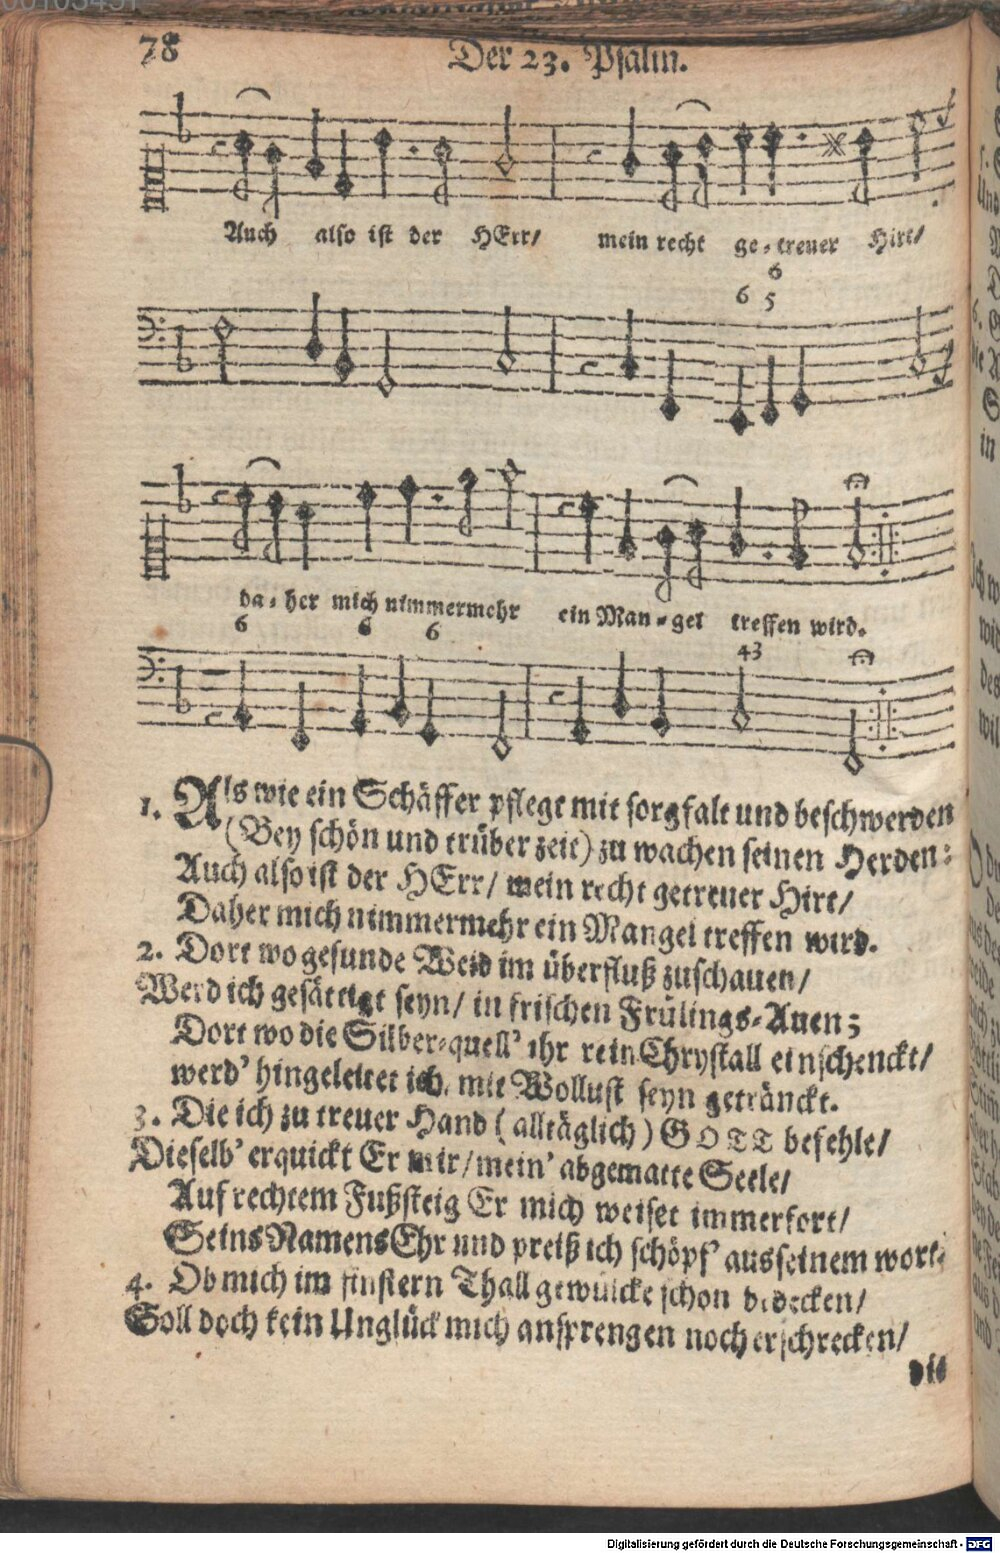 78
Der 23. Psalm.
Auch also ist der HErr/ mein recht ge-treuer Hirt/
6
6 5
da-her mich nimmermehr ein Man-gel treffen wird.
6 6 6 43
1. Als wie ein Schäffer pflegt mit sorgfalt und beschwerden
(Bey schön und trüber zeit) zu wachen seinen Herden:
Auch also ist der HErr/ mein recht getreuer Hirt/
Daher mich nimmermehr ein Mangel treffen wird.
2. Dort wo gesunde Weid im überfluß zuschauen/
Werd ich gesättigt seyn/ in frischen Frülings-Auen;
Dort wo die Silber-quell' ihr rein Chrystall einschenckt/
werd' hingeleitet ich, mit Wollust seyn getränckt.
3. Die ich zu treuer Hand (alltäglich) GOTT befehle/
Dieselb' erquickt Er mir/ mein' abgematte Seele/
Auf rechtem Fußsteig Er mich weiset immerfort/
Seins Namens Ehr und preiß ich schöpf' aus seinem wort.
4. Ob mich im finstern Thall gewülcke schon bedecken/
Soll doch kein Unglück mich ansprengen noch erschrecken/
die
Digitalisierung gefördert durch die Deutsche Forschungsgemeinschaft - DFG